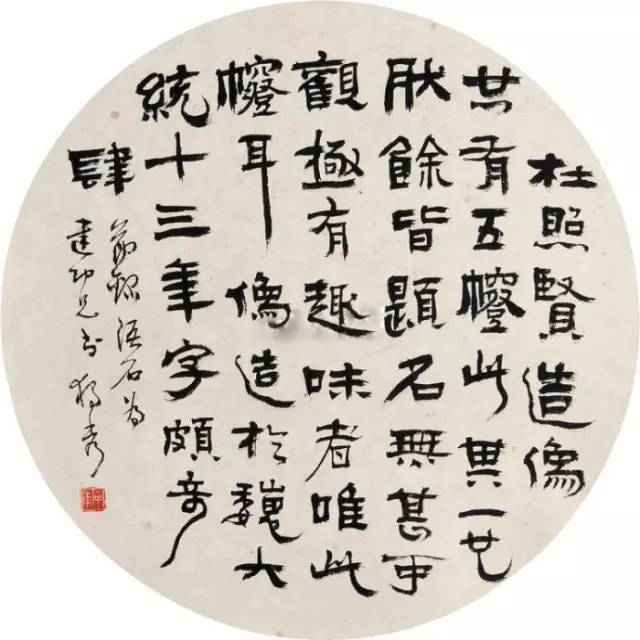 杜照賢造像
共有五㡧此其一也
肰餘皆題名無甚可
觀極有趣味者唯此
㡧耳像造於魏大
統十三年字頗奇
肆
節録語石為
建功兄書 獨秀